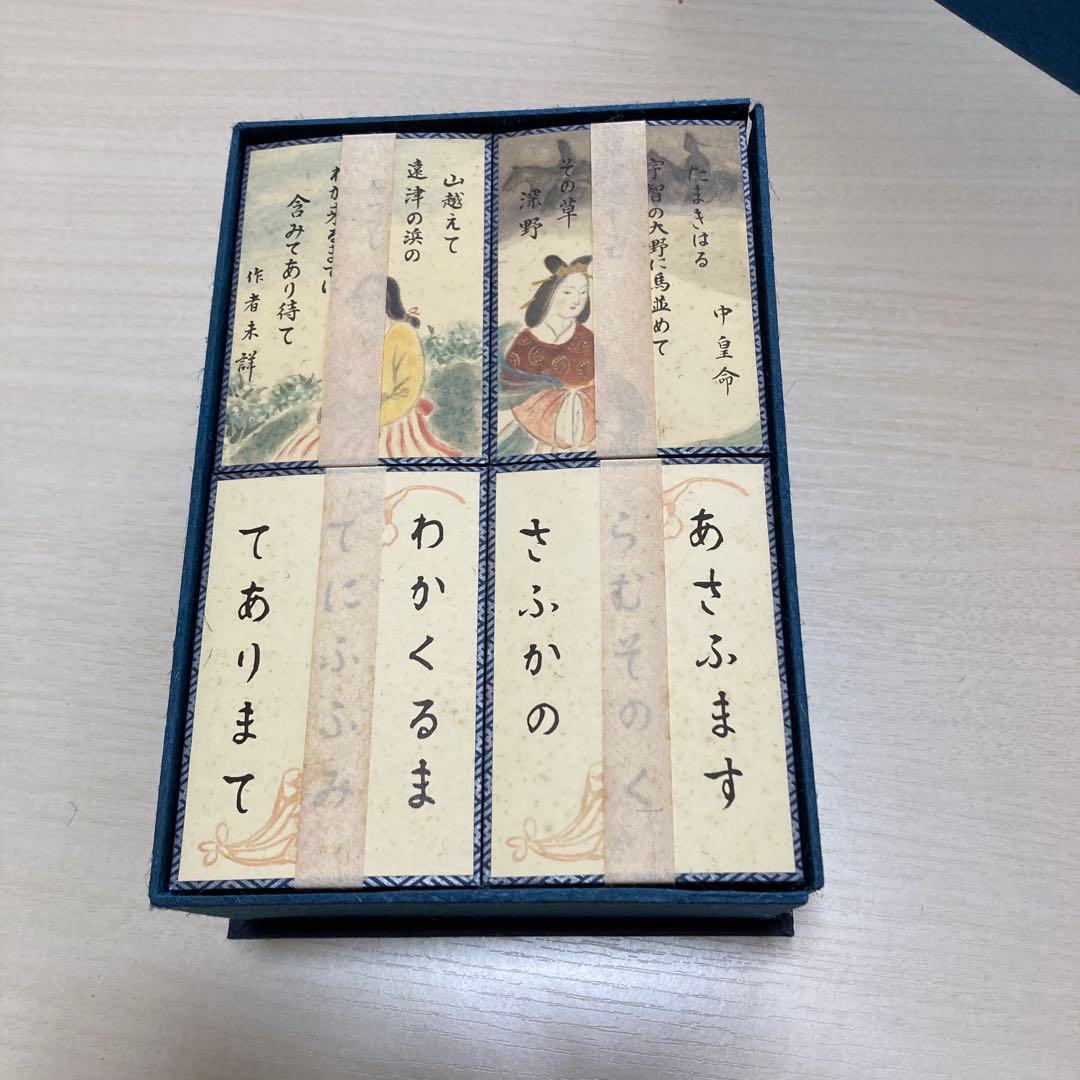 中皇命
たまきはる
宇智の大野に馬並めて
その草
深野
山越えて
遠津の浜の
含みてあり待て
作者未詳
あさふます
らむそのく
さふかの
わかくるま
てにふふみ
てありまて